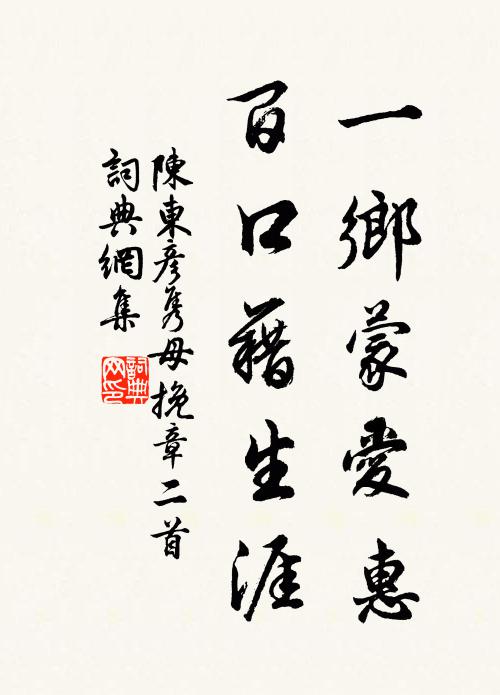 一鄉蒙愛惠
百口藉生涯
陳東彥雋母挽章二首
詞典網集
詞典
网印